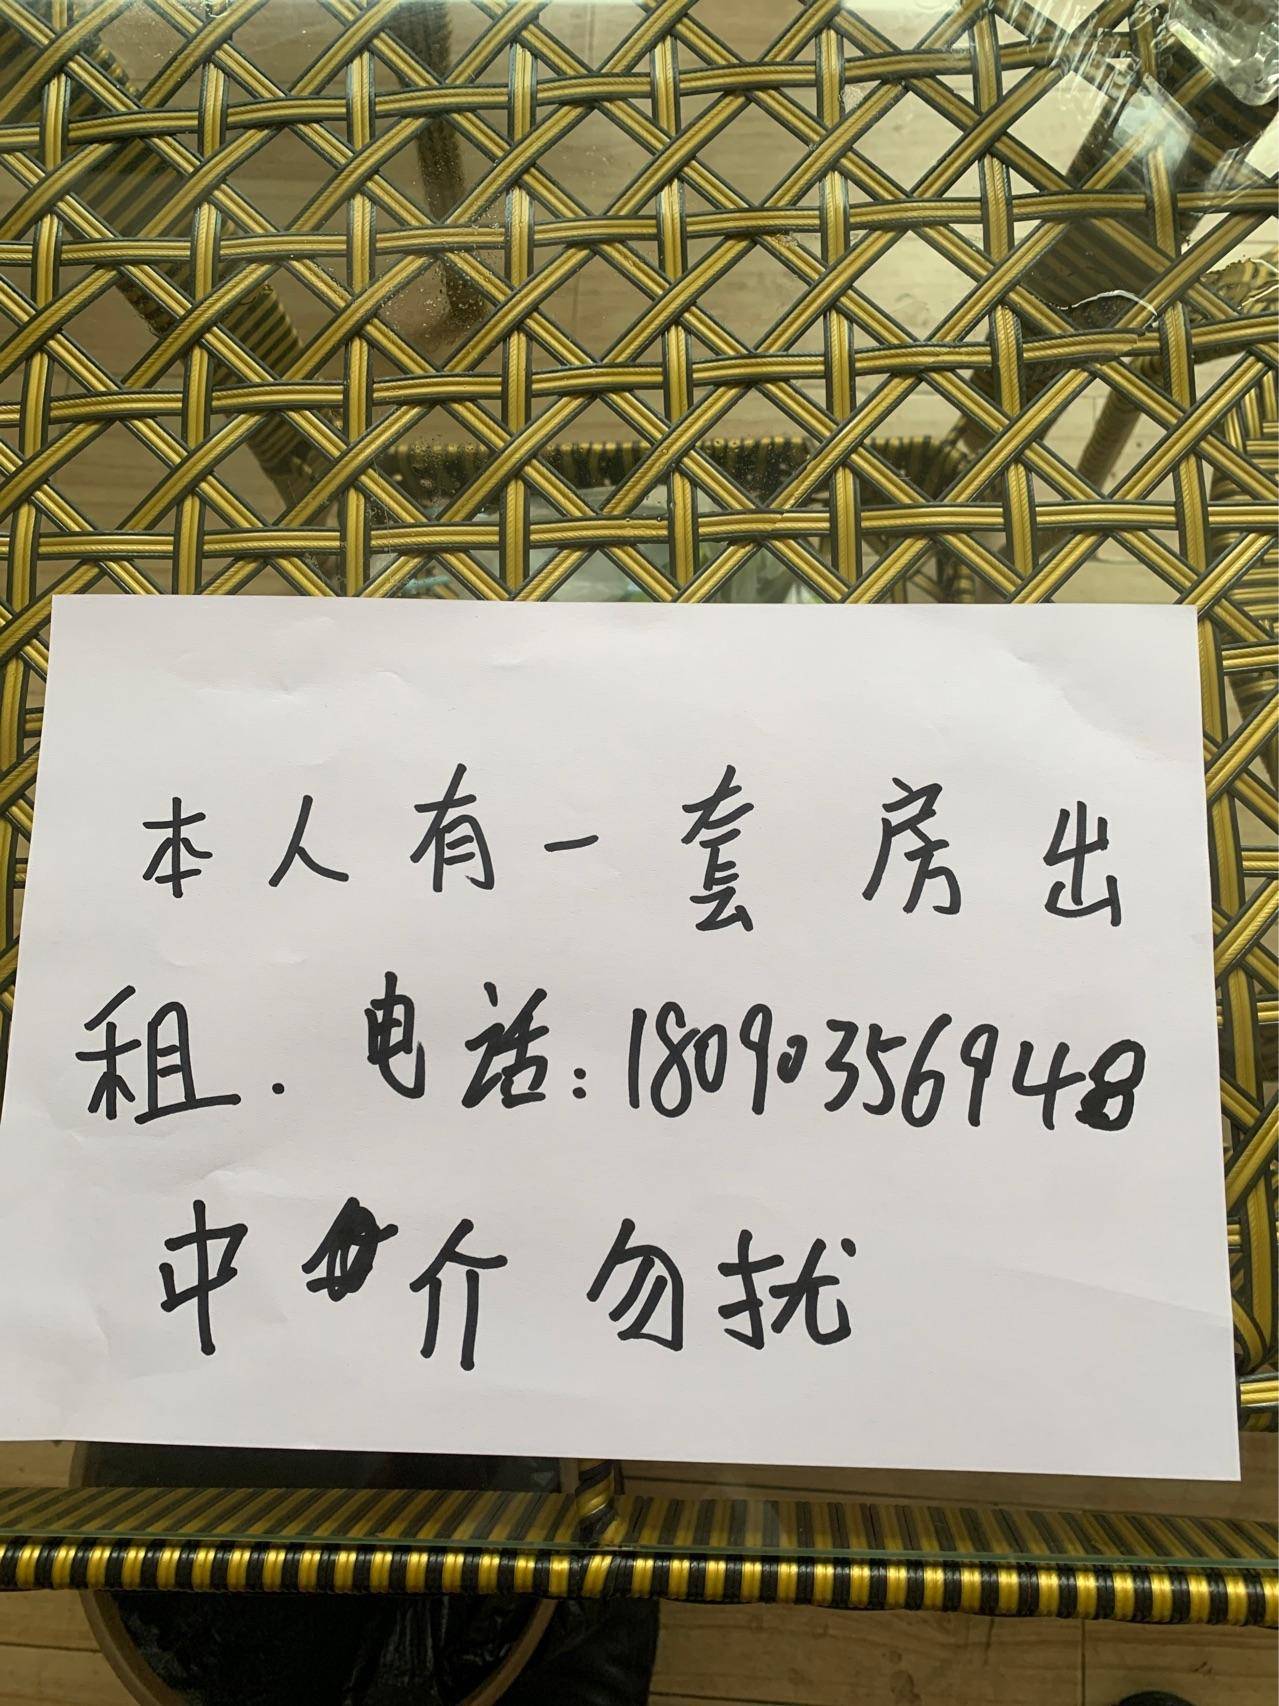 本人有一套房出
租.电话:18090356948
中介勿扰